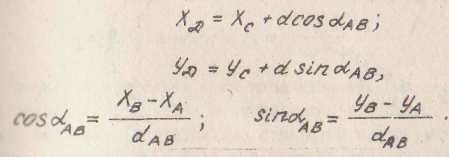 X_D = X_C + d cos α_AB ;
y_D = y_C + d sin α_AB,
cos α_AB = (X_B - X_A) / d_AB ; sin α_AB = (y_B - y_A) / d_AB .